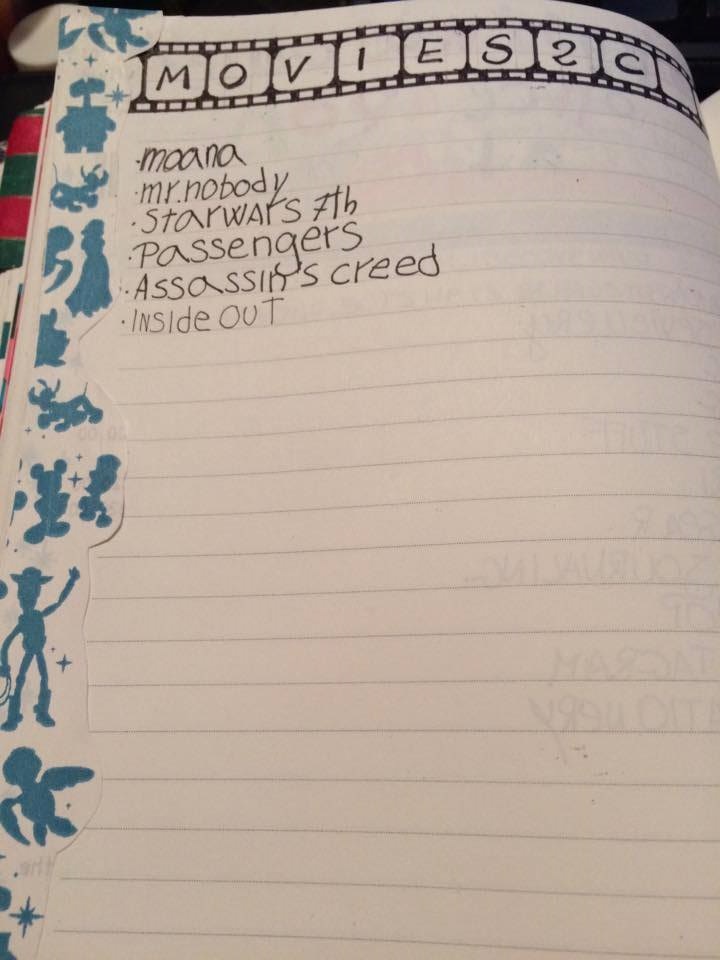 MOVIES2C
·moana
·mr.nobody
·STARWARS 7th
·Passengers
·Assassin's creed
·INSIde OUT